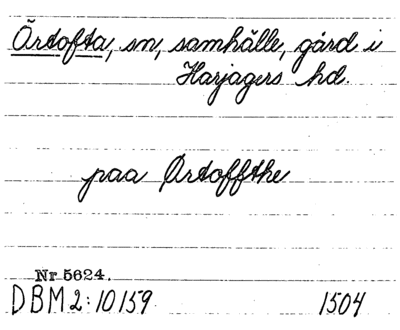 Örtofta, sn, samhälle, gård i
Harjagers hd.
paa Ørtoffthe
Nr 5624.
DBM 2:10159 1504